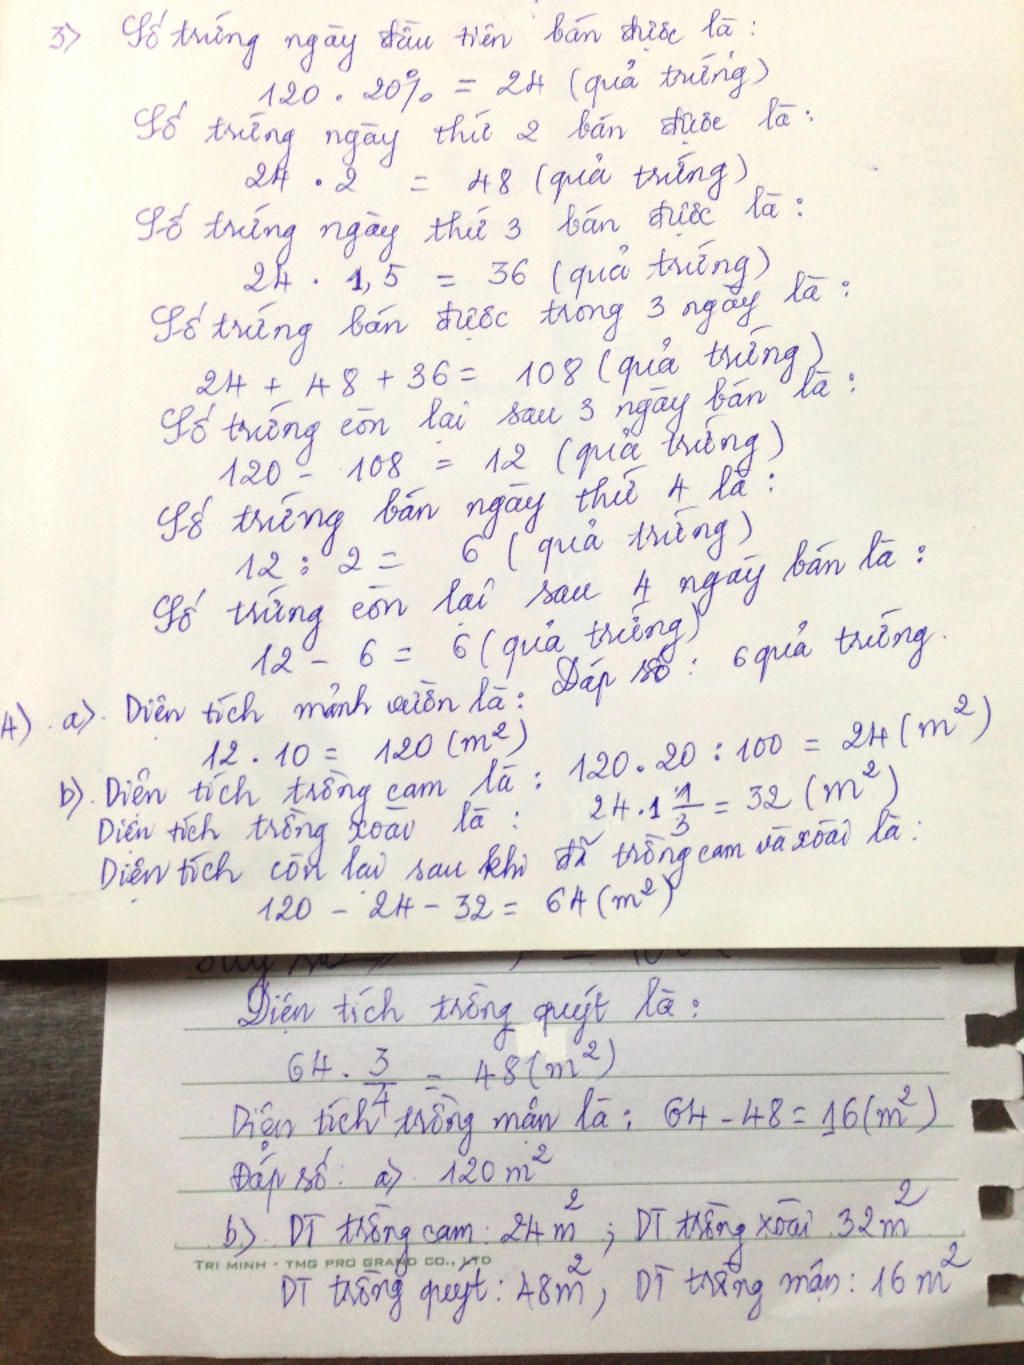 3) Số trứng ngày đầu tiên bán được là:
120 . 20% = 24 (quả trứng)
Số trứng ngày thứ 2 bán được là:
24 . 2 = 48 (quả trứng)
Số trứng ngày thứ 3 bán được là:
24 . 1,5 = 36 (quả trứng)
Số trứng bán được trong 3 ngày là:
24 + 48 + 36 = 108 (quả trứng)
Số trứng còn lại sau 3 ngày bán là:
120 - 108 = 12 (quả trứng)
Số trứng bán ngày thứ 4 là:
12 : 2 = 6 (quả trứng)
Số trứng còn lại sau 4 ngày bán là:
12 - 6 = 6 (quả trứng)
Đáp số: 6 quả trứng.
4) a) Diện tích mảnh vườn là:
12 . 10 = 120 (m²)
b) Diện tích trồng cam là: 120 . 20 : 100 = 24 (m²)
Diện tích trồng xoài là: 24 . 1 1/3 = 32 (m²)
Diện tích còn lại sau khi đã trồng cam và xoài là:
120 - 24 - 32 = 64 (m²)
Diện tích trồng quýt là:
64 . 3/4 = 48 (m²)
Diện tích trồng mận là: 64 - 48 = 16 (m²)
Đáp số: a) 120 m²
b) DT trồng cam: 24 m² ; DT trồng xoài 32 m²
TRI MINH - TMG PRO GRAND CO., LTD
DT trồng quýt: 48 m², DT trồng mận: 16 m²